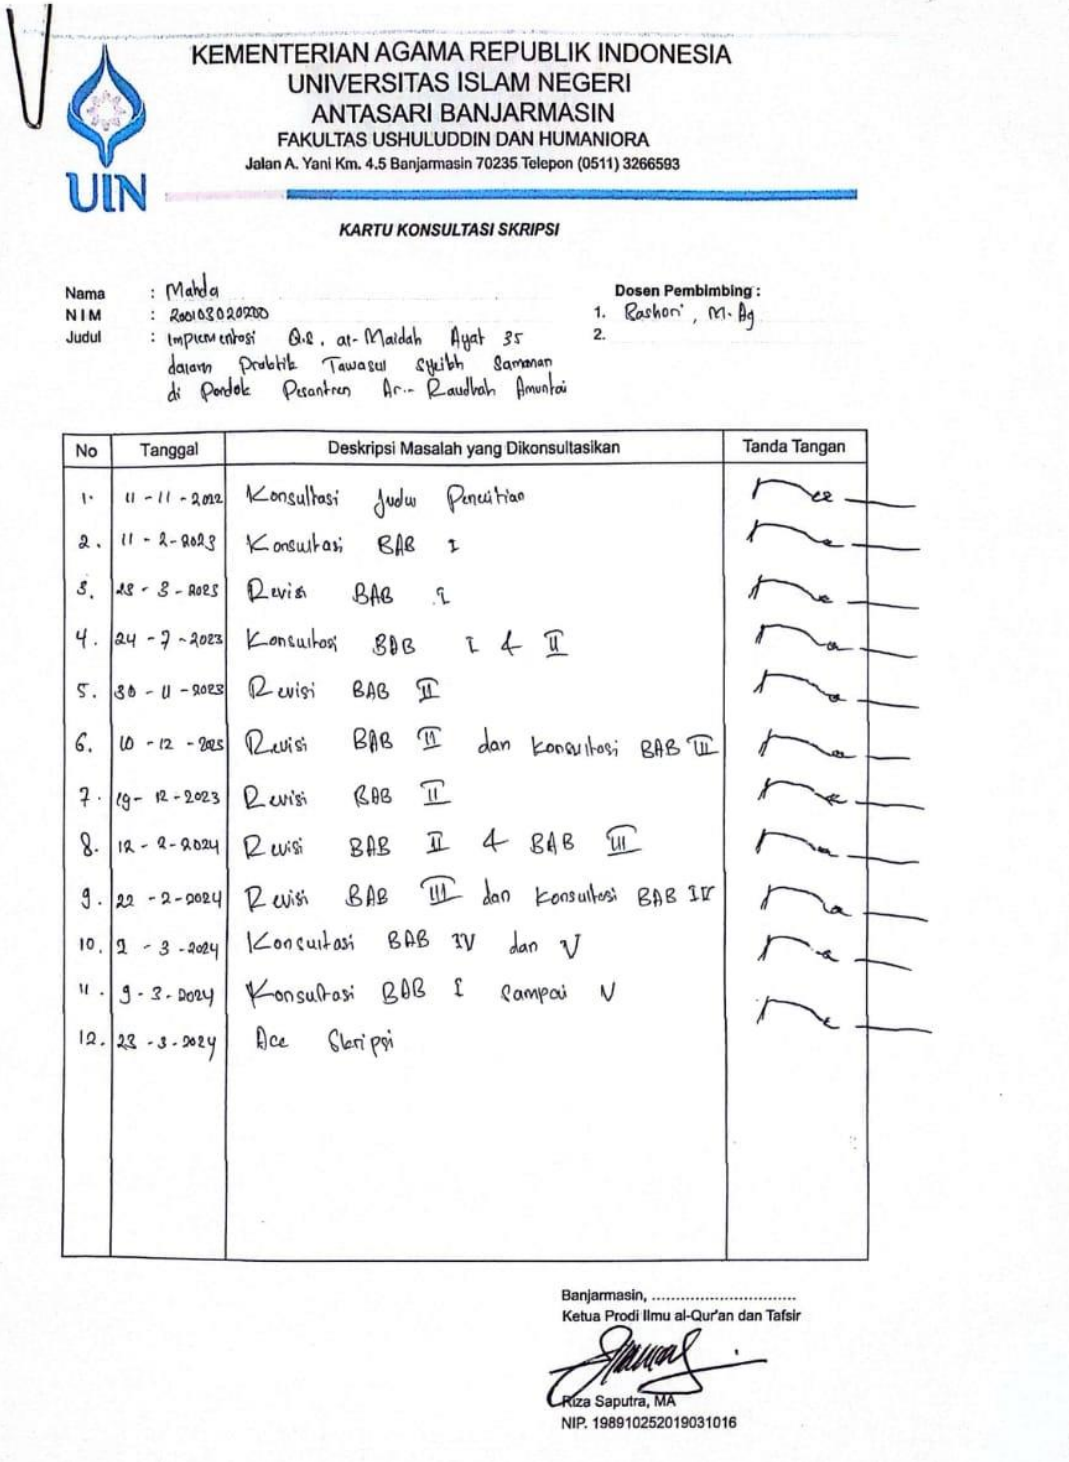 KEMENTERIAN AGAMA REPUBLIK INDONESIA
UNIVERSITAS ISLAM NEGERI
ANTASARI BANJARMASIN
FAKULTAS USHULUDDIN DAN HUMANIORA
Jalan A. Yani Km. 4.5 Banjarmasin 70235 Telepon (0511) 3266593
UIN
KARTU KONSULTASI SKRIPSI
Nama : Mahda
NIM :
Judul : Implementasi Q.S. al-Maidah Ayat 35
dalam Praktik Tawasul Syeikh Samanan
di Pondok Pesantren Ar-Raudhah Amuntai
Dosen Pembimbing :
1. Bashori, M.Ag
2.
No Tanggal Deskripsi Masalah yang Dikonsultasikan Tanda Tangan
1. 11-11-2022 Konsultasi Judul Penelitian
2. 11-2-2023 Konsultasi BAB I
3. Revisi BAB I
4. 24-7-2023 Konsultasi BAB I & II
5. 30-11-2023 Revisi BAB II
6. Revisi BAB II dan Konsultasi BAB III
7. 19-12-2023 Revisi BAB II
8. 12-2-2024 Revisi BAB II & BAB III
9. 22-2-2024 Revisi BAB III dan Konsultasi BAB IV
10. 2-3-2024 Konsultasi BAB IV dan V
11. 9-3-2024 Konsultasi BAB I Sampai V
12. 23-3-2024 Acc Skripsi
Banjarmasin, ..............................
Ketua Prodi Ilmu al-Qur'an dan Tafsir
Riza Saputra, MA
NIP. 198910252019031016